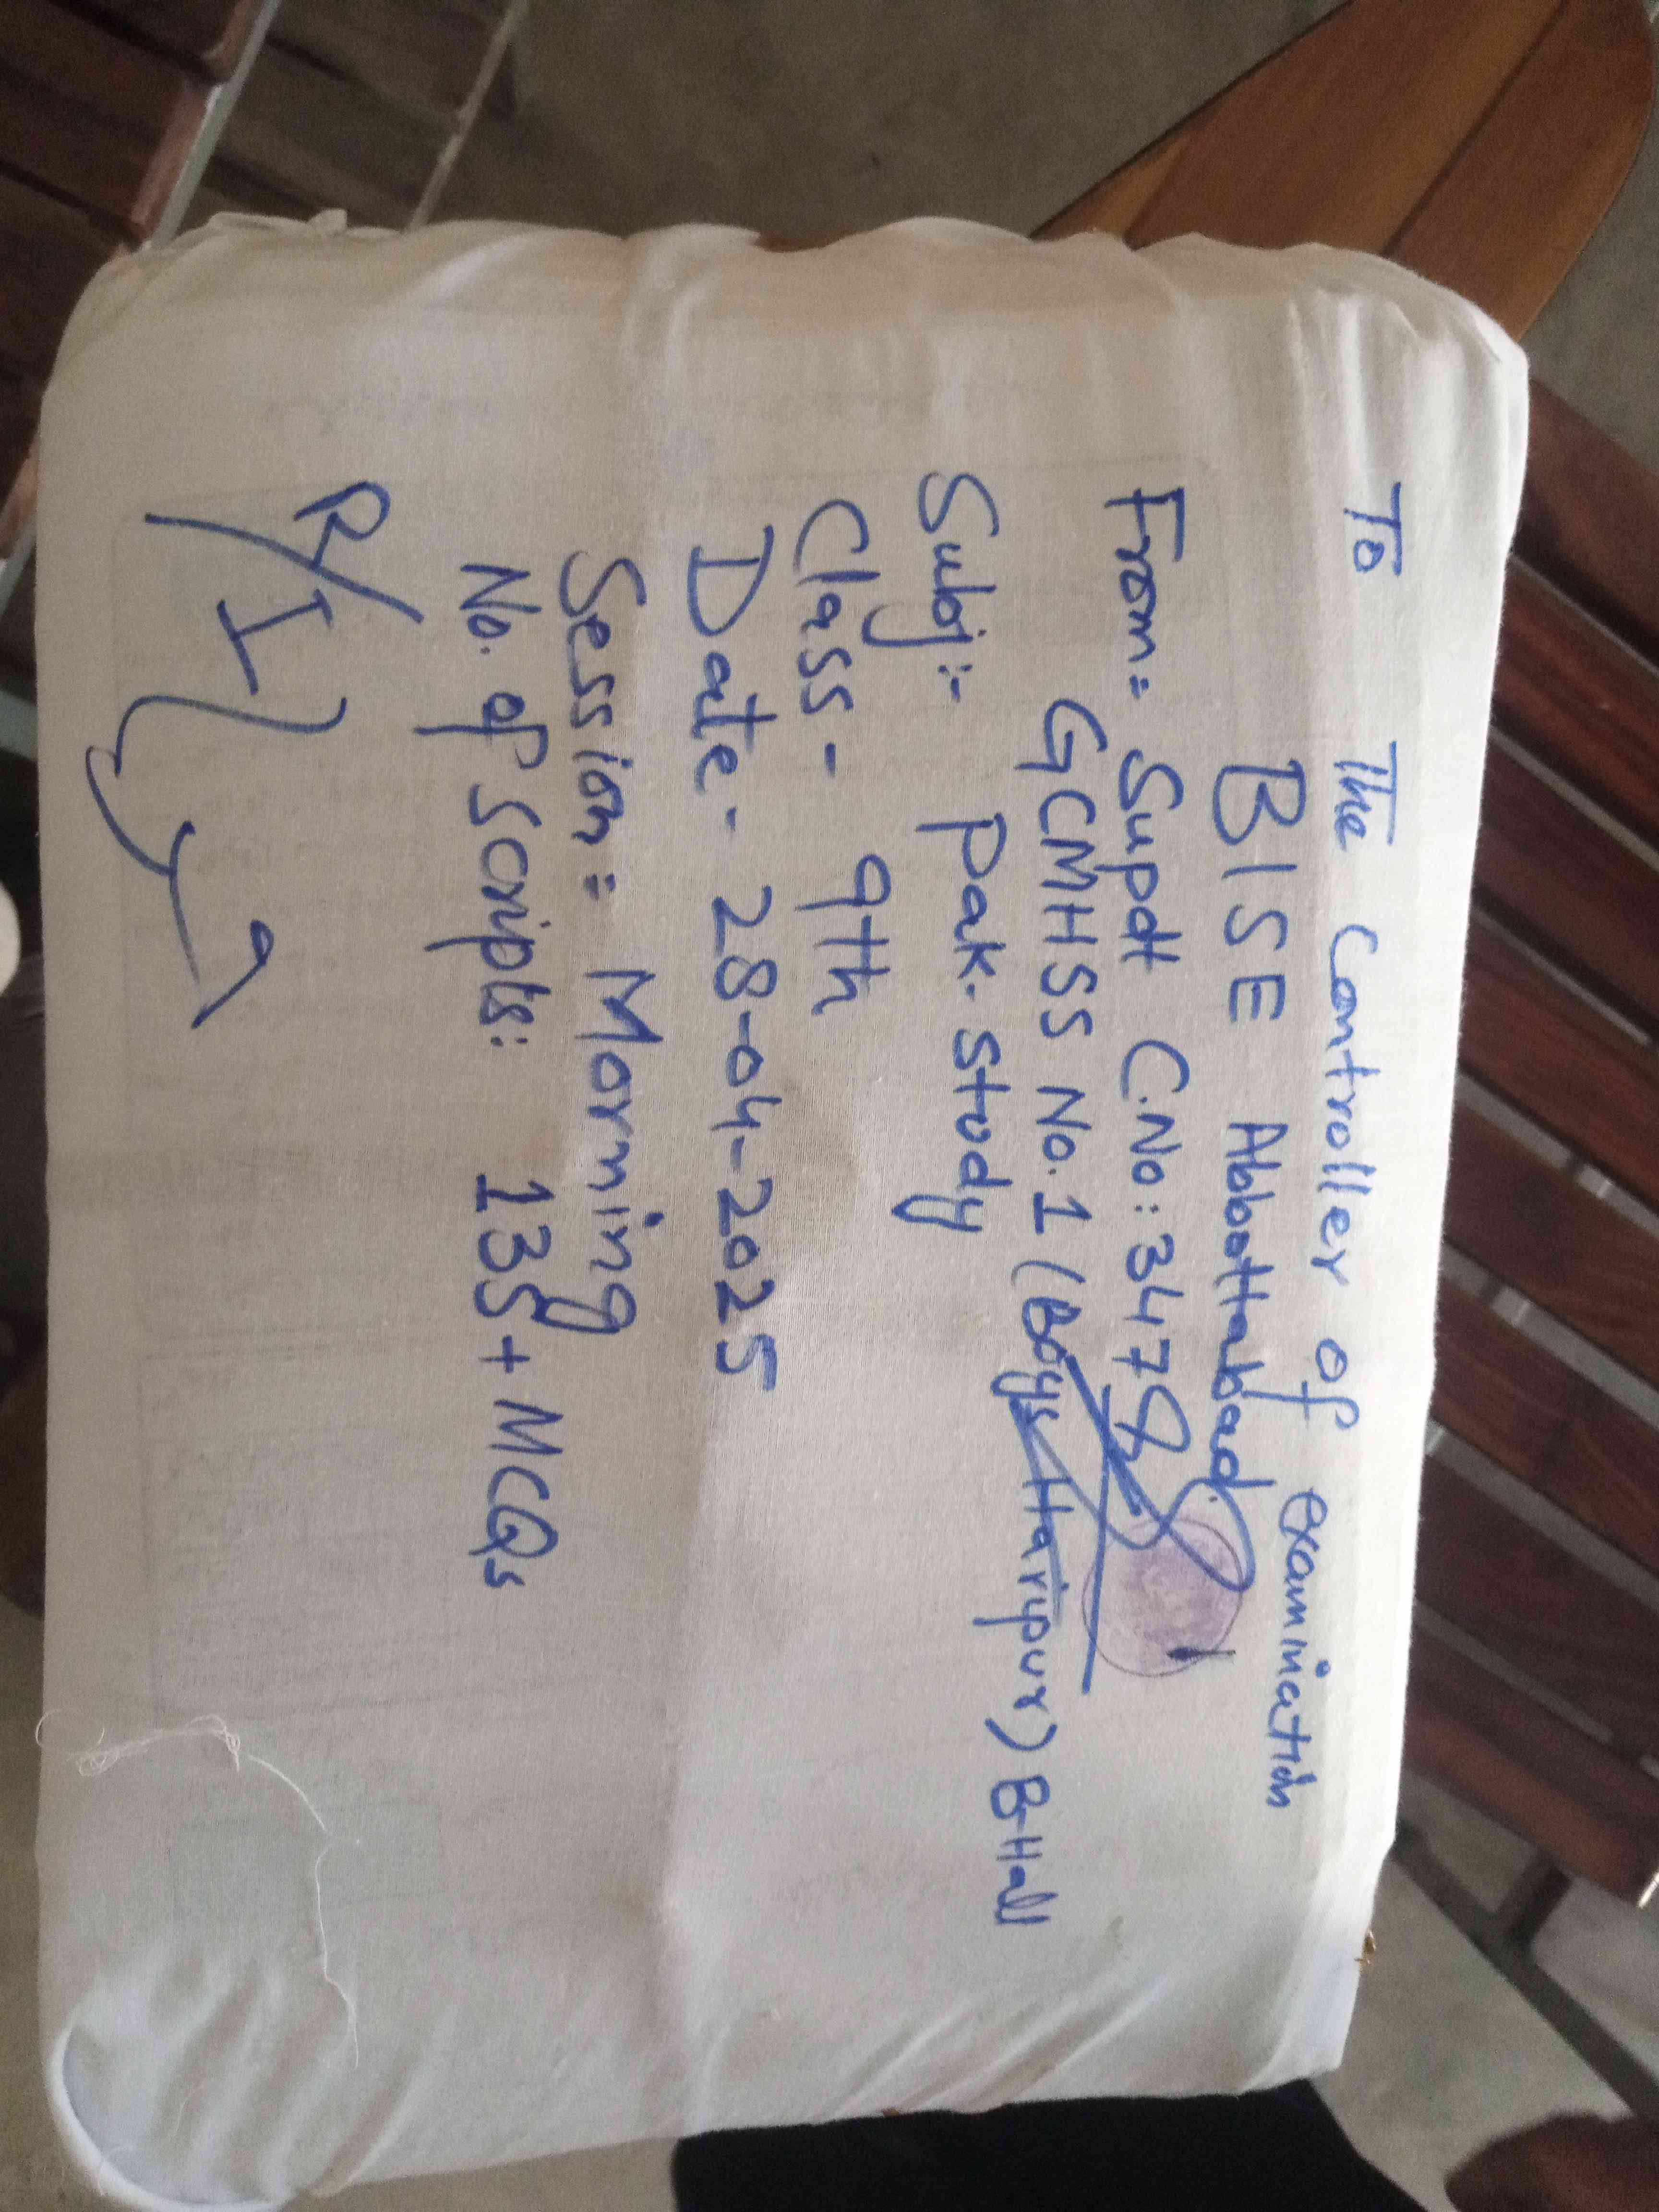 To The Controller of examination
BISE Abbottabad.
From = Supdt C.No: 3478
GCMHSS No. 1 (Boys Haripur) B-Hall
Subj:- Pak. Study
Class - 9th
Date - 28-04-2025
Session = Morning
No. of Scripts: 135 + MCQs
R/I